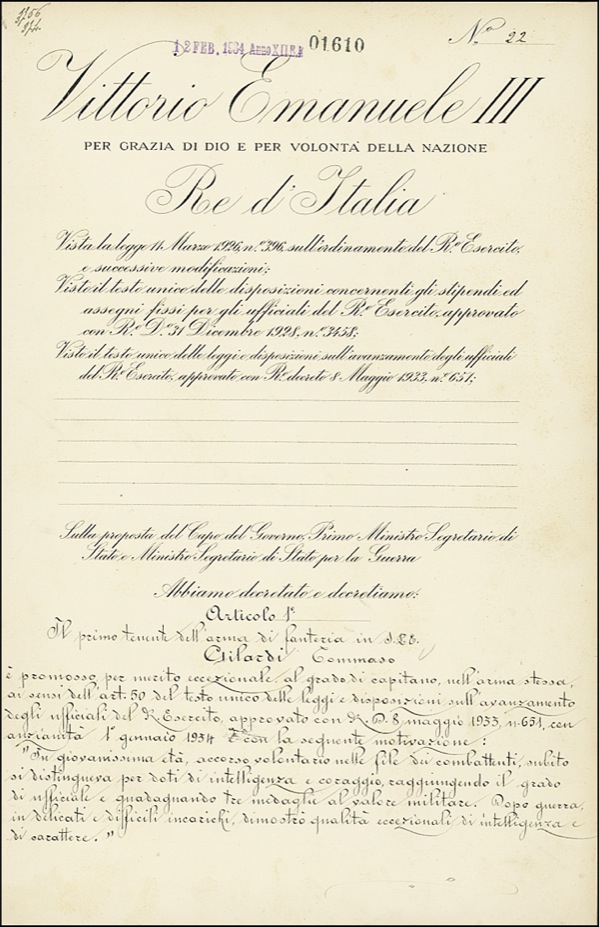 Nº 22
12 FEB. 1934 Anno XII E.F.
01610
Vittorio Emanuele III
PER GRAZIA DI DIO E PER VOLONTÀ DELLA NAZIONE
Re d'Italia
Vista la legge 11 Marzo 1926, n.º 396, sull'ordinamento del R.º Esercito,
e successive modificazioni;
Visto il testo unico delle disposizioni concernenti gli stipendi ed
assegni fissi per gli ufficiali del R.º Esercito, approvato
con R.º D.º 31 Dicembre 1928, n.º 3458;
Visto il testo unico delle leggi e disposizioni sull'avanzamento degli ufficiali
del R.º Esercito, approvato con R.º decreto 8 Maggio 1933, n.º 651;
Sulla proposta del Capo del Governo, Primo Ministro Segretario di
Stato e Ministro Segretario di Stato per la Guerra
Abbiamo decretato e decretiamo:
Articolo 1º
Il primo tenente dell'arma di fanteria in S.P.E.
Gilardi Tommaso
è promosso, per merito eccezionale, al grado di capitano, nell'arma stessa,
ai sensi dell'art. 50 del testo unico delle leggi e disposizioni sull'avanzamento
degli ufficiali del R. Esercito, approvato con R. D. 8 maggio 1933, n. 651, con
anzianità 1º gennaio 1934 e con la seguente motivazione:
"In giovanissima età, accorso volontario nelle file dei combattenti, subito
si distingueva per doti di intelligenza e coraggio, raggiungendo il grado
di ufficiale e guadagnando tre medaglie al valore militare. Dopo guerra,
in delicati e difficili incarichi, dimostrò qualità eccezionali di intelligenza e
di carattere."